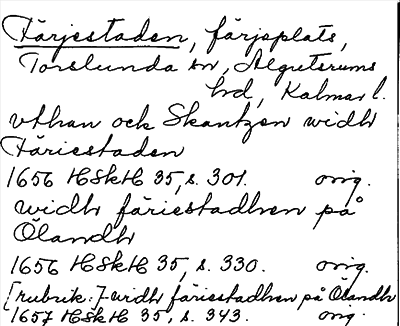 Färjestaden, färjeplats,
Torslunda sn, Algutsrums
hd, Kalmar l.
vthan och Skantzen widh
Färiestaden
1656 HSkH 35, s. 301. orig.
widh färiestadhen på
Ölandh
1656 HSkH 35, s. 330. orig.
[rubrik:] widh färiestadhen på Ölandh
1657 HSkH 35, s. 343. orig.